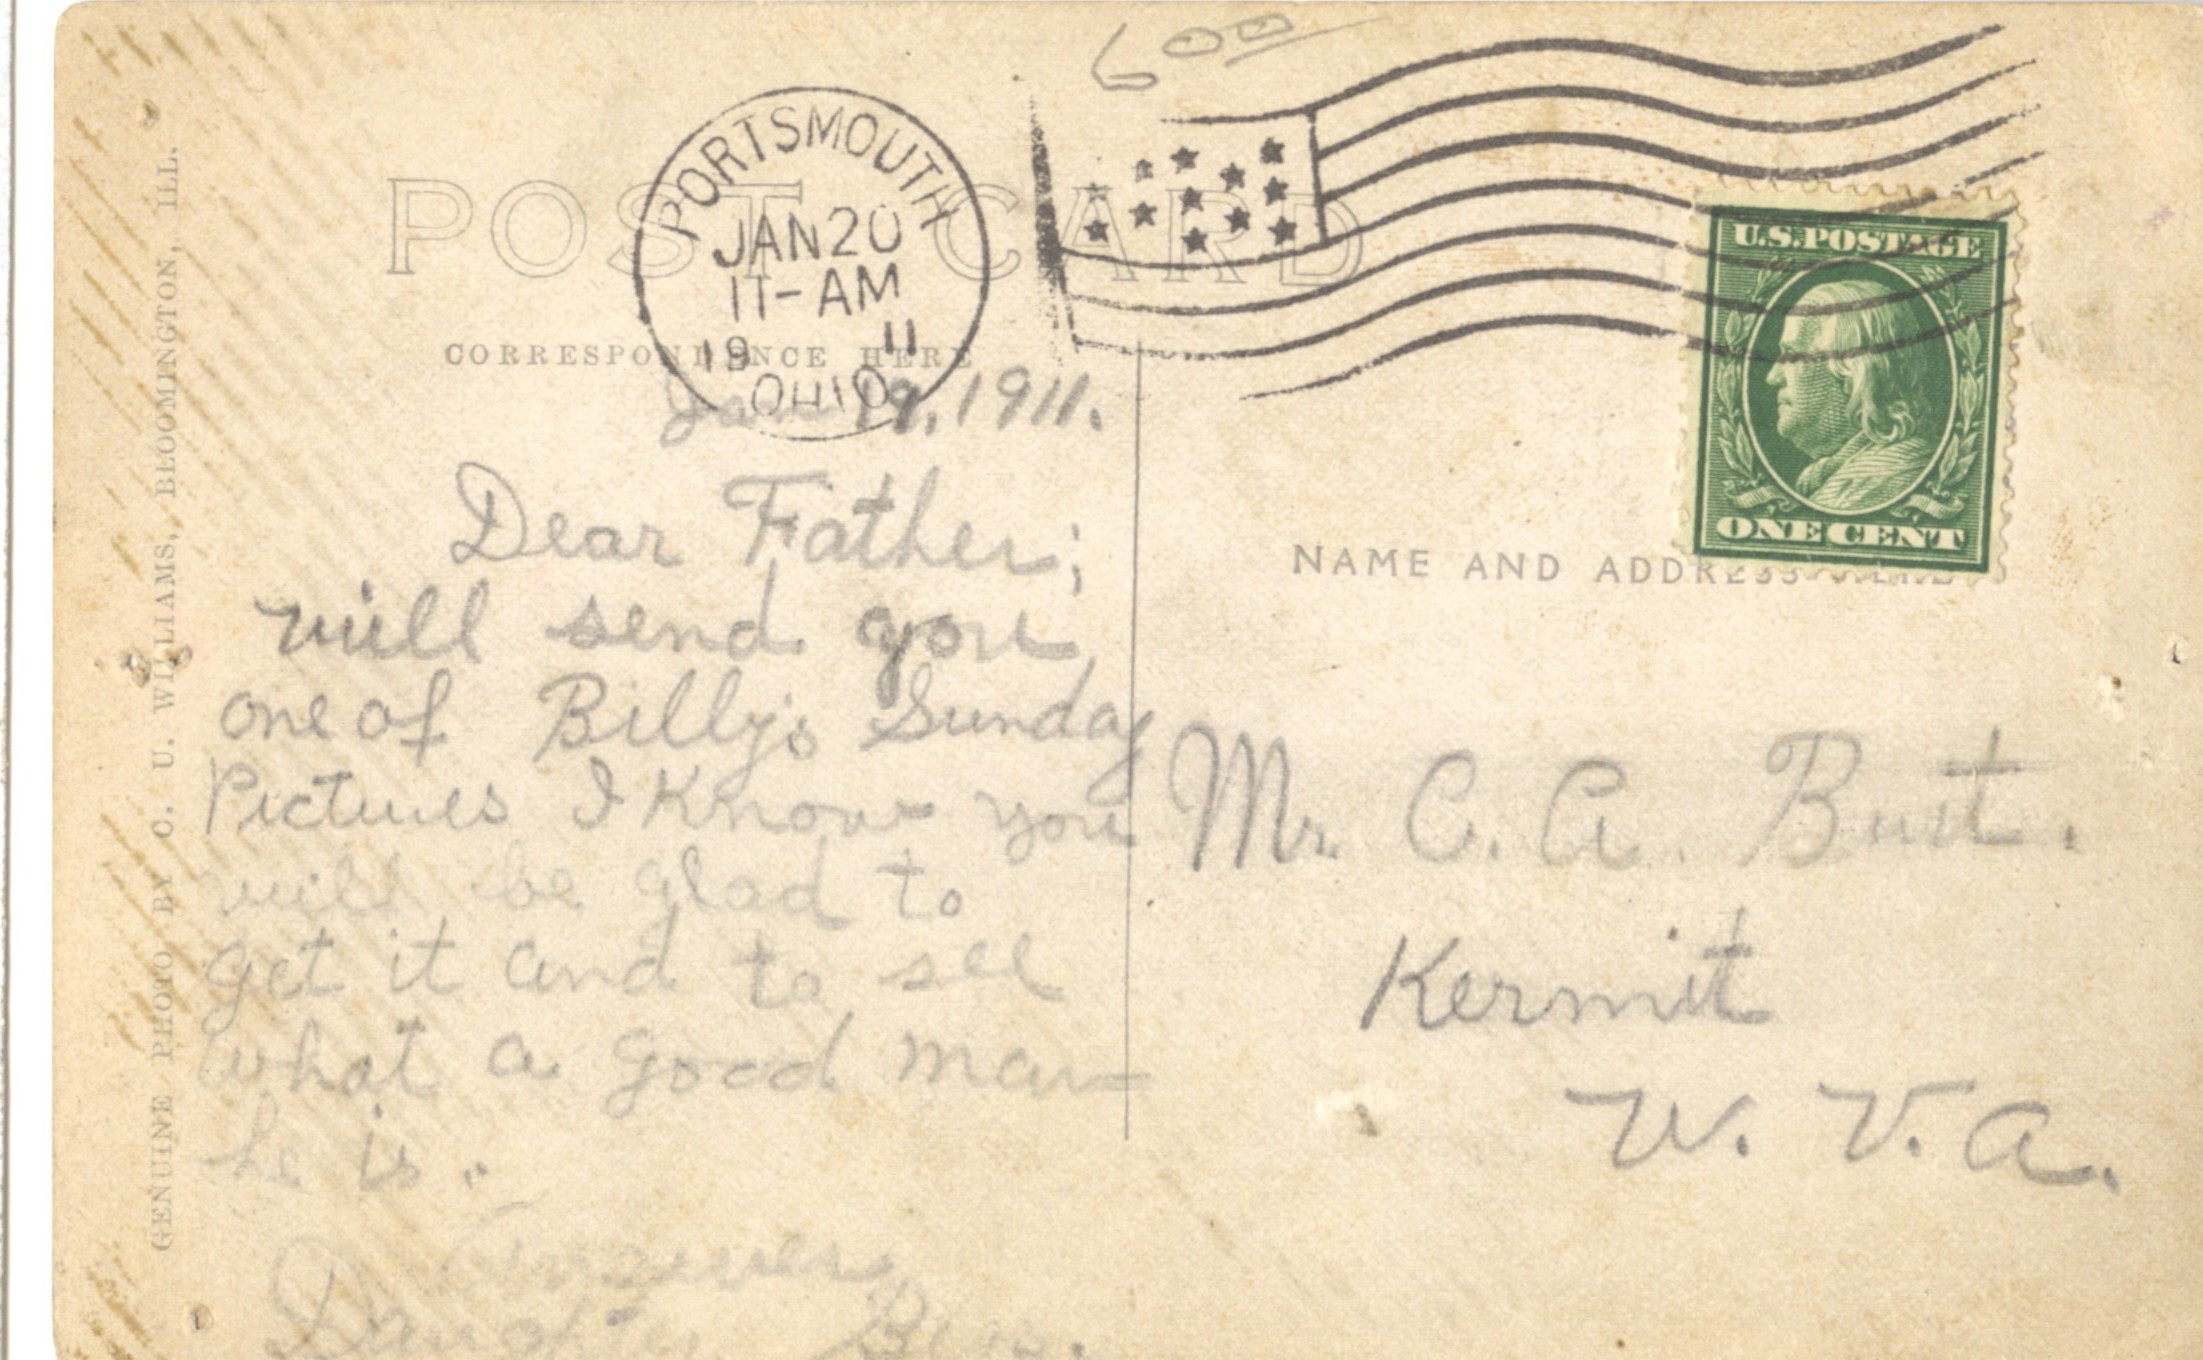 600
PORTSMOUTH
JAN 20
11-AM
19 11
OHIO
POST CARD
CORRESPONDENCE HERE
Jan 19, 1911.
Dear Father;
will send you
one of Billy's Sunday
Pictures I Know you
will be glad to
get it and to see
what a good man
he is.
Daughter
U.S. POSTAGE
ONE CENT
NAME AND ADDRESS HERE
Mr. C. A. Burt.
Kermit
W. V. A.
GENUINE PHOTO BY C. U. WILLIAMS, BLOOMINGTON, ILL.